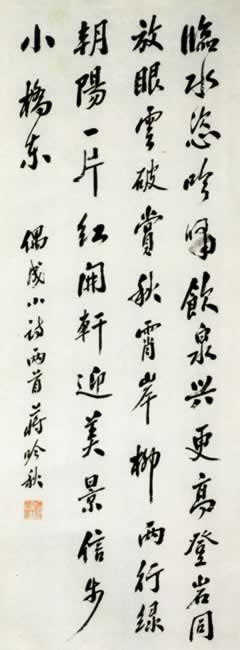 臨水恣吟嘯飲泉兴更高登岩同
放眼雲破賞秋霄岸柳两行緑
朝陽一片紅開軒迎美景信步
小橋东
偶成小詩两首蔣吟秋